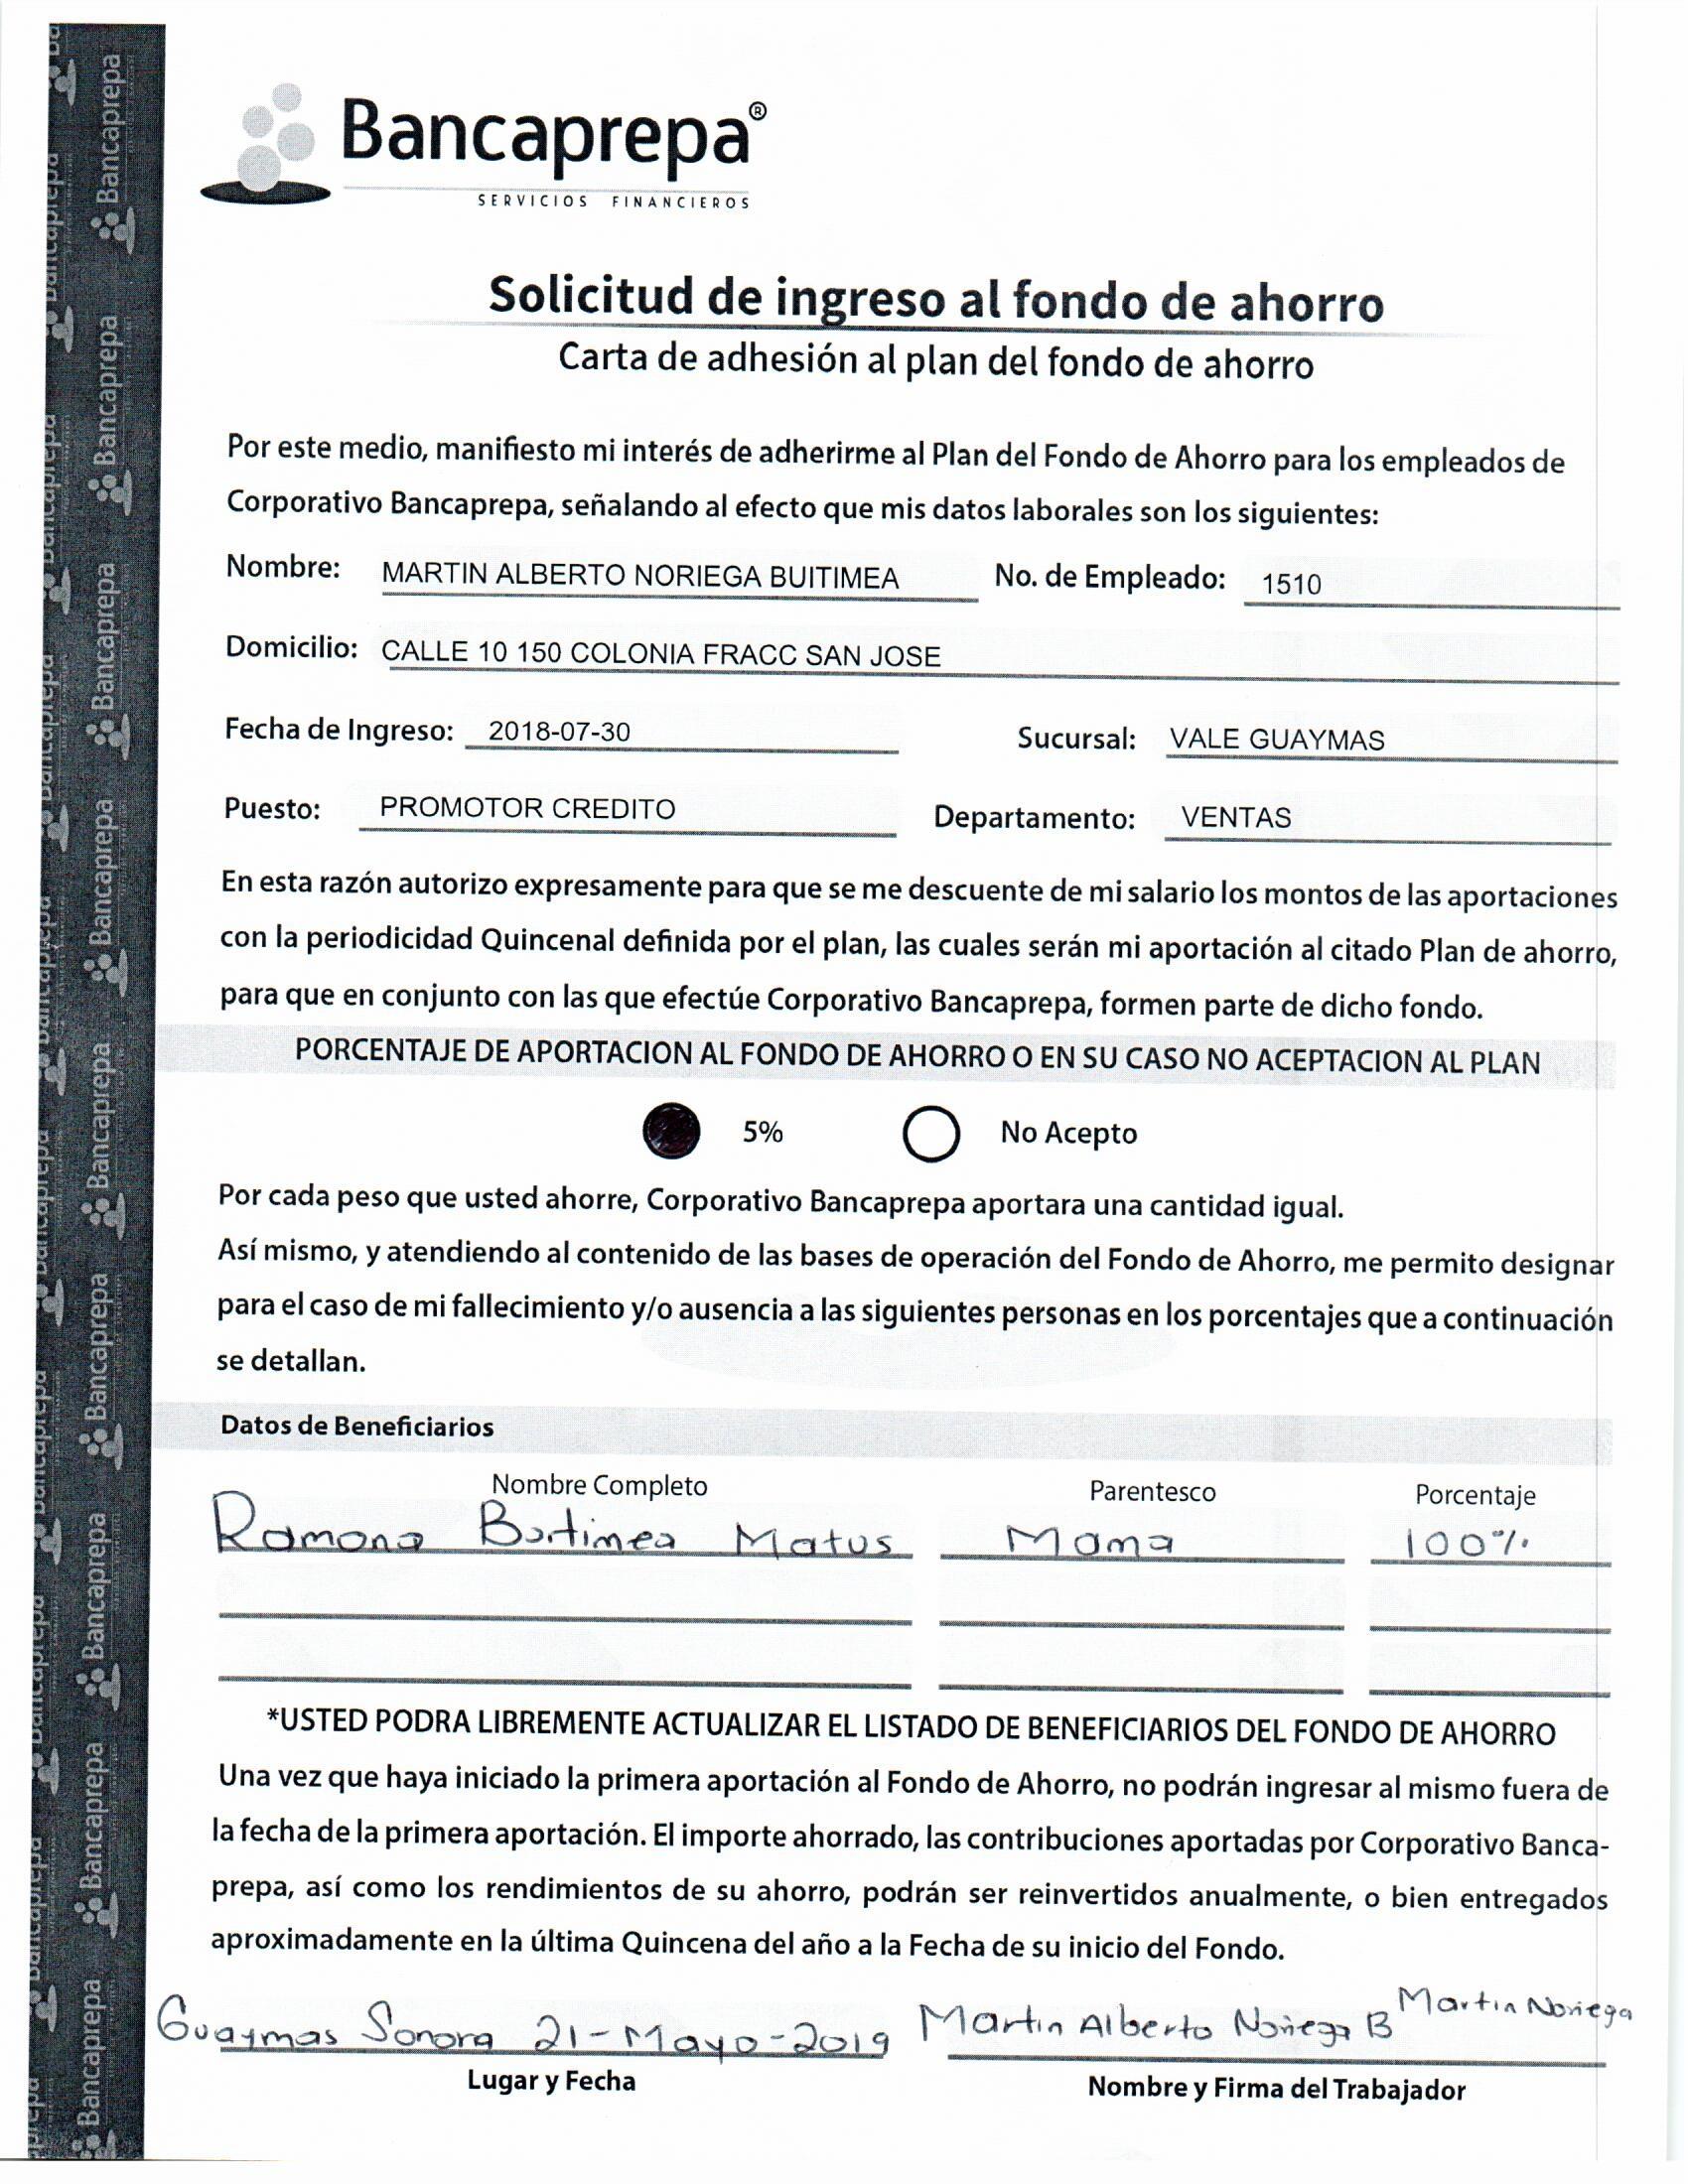 Bancaprepa®
SERVICIOS FINANCIEROS
Solicitud de ingreso al fondo de ahorro
Carta de adhesión al plan del fondo de ahorro
Por este medio, manifiesto mi interés de adherirme al Plan del Fondo de Ahorro para los empleados de
Corporativo Bancaprepa, señalando al efecto que mis datos laborales son los siguientes:
Nombre: MARTIN ALBERTO NORIEGA BUITIMEA No. de Empleado: 1510
Domicilio: CALLE 10 150 COLONIA FRACC SAN JOSE
Fecha de Ingreso: 2018-07-30 Sucursal: VALE GUAYMAS
Puesto: PROMOTOR CREDITO Departamento: VENTAS
En esta razón autorizo expresamente para que se me descuente de mi salario los montos de las aportaciones
con la periodicidad Quincenal definida por el plan, las cuales serán mi aportación al citado Plan de ahorro,
para que en conjunto con las que efectúe Corporativo Bancaprepa, formen parte de dicho fondo.
PORCENTAJE DE APORTACION AL FONDO DE AHORRO O EN SU CASO NO ACEPTACION AL PLAN
5% No Acepto
Por cada peso que usted ahorre, Corporativo Bancaprepa aportara una cantidad igual.
Así mismo, y atendiendo al contenido de las bases de operación del Fondo de Ahorro, me permito designar
para el caso de mi fallecimiento y/o ausencia a las siguientes personas en los porcentajes que a continuación
se detallan.
Datos de Beneficiarios
Nombre Completo Parentesco Porcentaje
Ramona Buitimea Matus Mama 100%
*USTED PODRA LIBREMENTE ACTUALIZAR EL LISTADO DE BENEFICIARIOS DEL FONDO DE AHORRO
Una vez que haya iniciado la primera aportación al Fondo de Ahorro, no podrán ingresar al mismo fuera de
la fecha de la primera aportación. El importe ahorrado, las contribuciones aportadas por Corporativo Banca-
prepa, así como los rendimientos de su ahorro, podrán ser reinvertidos anualmente, o bien entregados
aproximadamente en la última Quincena del año a la Fecha de su inicio del Fondo.
Guaymas Sonora 21-Mayo-2019 Martin Alberto Noriega B Martin Noriega
Lugar y Fecha Nombre y Firma del Trabajador